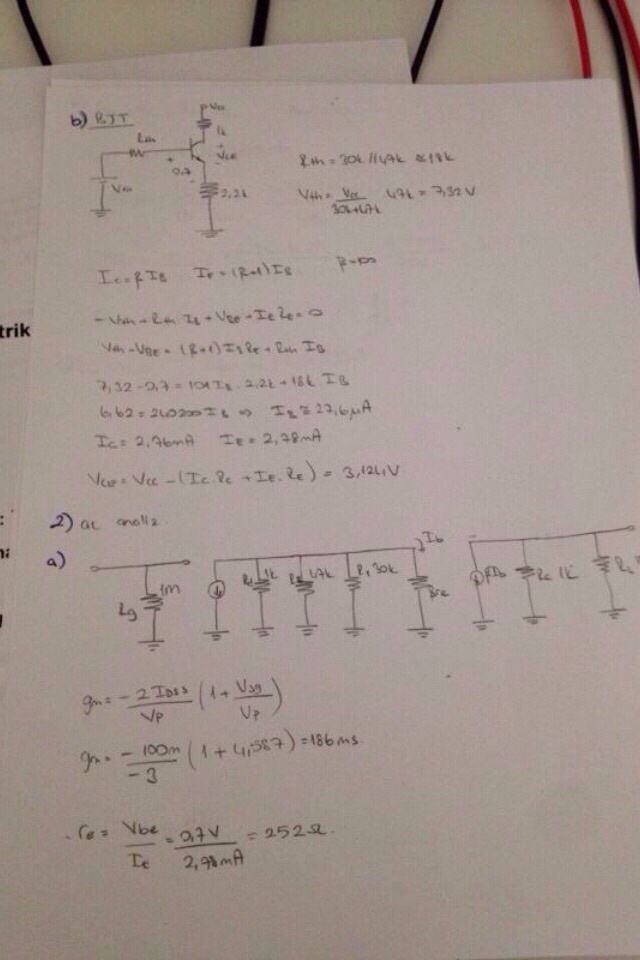 b) BJT
Rth
Vth
+ 0,7 -
+Vcc
1k
+ VCE -
2,2k
Rth = 30k // 47k ≅ 18k
Vth = Vcc / 30k+47k . 47k = 7,32 V
Ic = β IB   IE = (β+1) IB   β=100
- Vth + Rth . IB + VBE + IE RE = 0
Vth - VBE = (β+1) IB RE + Rth IB
7,32 - 0,7 = 101 IB . 2,2k + 18k IB
6,62 = 240200 IB ⇒ IB ≅ 27,6 µA
Ic = 2,76mA   IE = 2,78mA
VCE = Vcc - (Ic . Rc + IE . RE) = 3,124 V
trik
2) ac analiz.
a)
Rg 1m
1k
47k
R1 30k
Ib
βre
βIb
Rc 1k
gm = - 2 IDSS / Vp (1 + Vsg / Vp)
gm = - 100m / -3 (1 + 4,587) = 186 ms.
re = Vbe / IE = 0,7V / 2,78mA = 252 Ω.